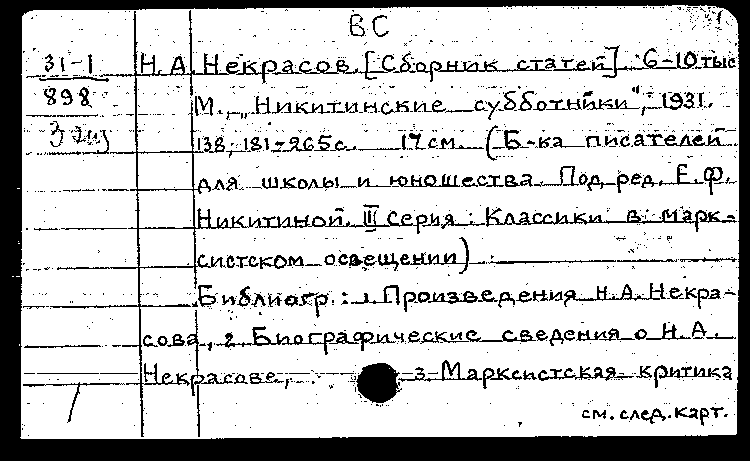 ВС
31-1 Н.А. Некрасов. [Сборник статей]. 6-10 тыс
898 М., „Никитинские субботники", 1931.
3 экз 138, 181-265 с. 17 см. (Б-ка писателей
для школы и юношества. Под ред. Е.Ф.
Никитиной. III Серия: Классики в марк-
систском освещении)
Библиогр.: 1. Произведения Н.А. Некра-
сова, 2. Биографические сведения о Н.А.
Некрасове, 3. Марксистская критика
см. след. карт.